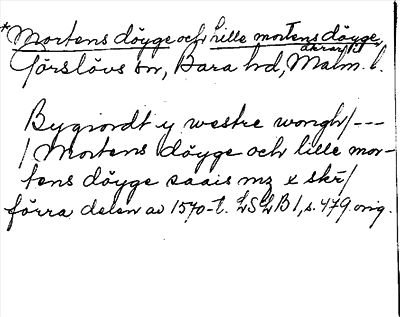 *Mortens döyge och Lille mortens döyge,
åkrar i
Görslövs sn, Bara hd, Malm. l.
Bygiordt y westre wongh/---
/Mortens döyge och lille mor-
tens döyge saais mz x skr/
förra delen av 1570-t. LSLB1, s. 479 orig.